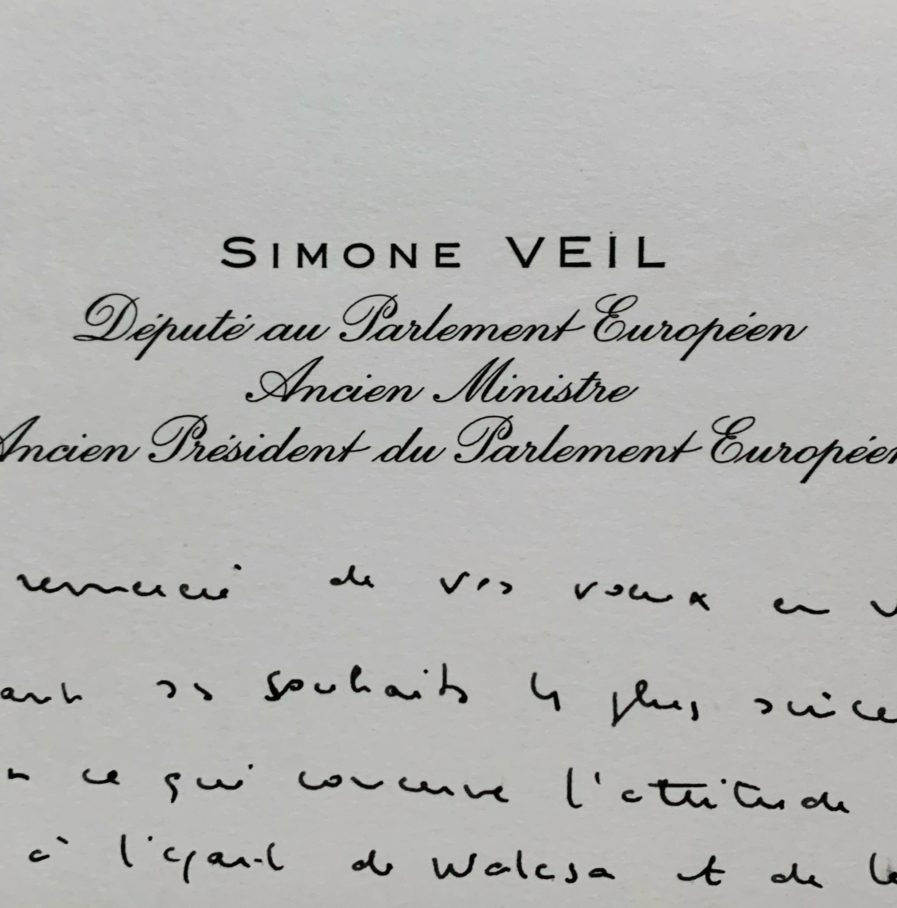 SIMONE VEIL
Député au Parlement Européen
Ancien Ministre
Ancien Président du Parlement Européen
remercie de vos vœux en v
ant ses souhaits les plus since
n ce qui concerne l'attitude
à l'égard de Walesa et de le